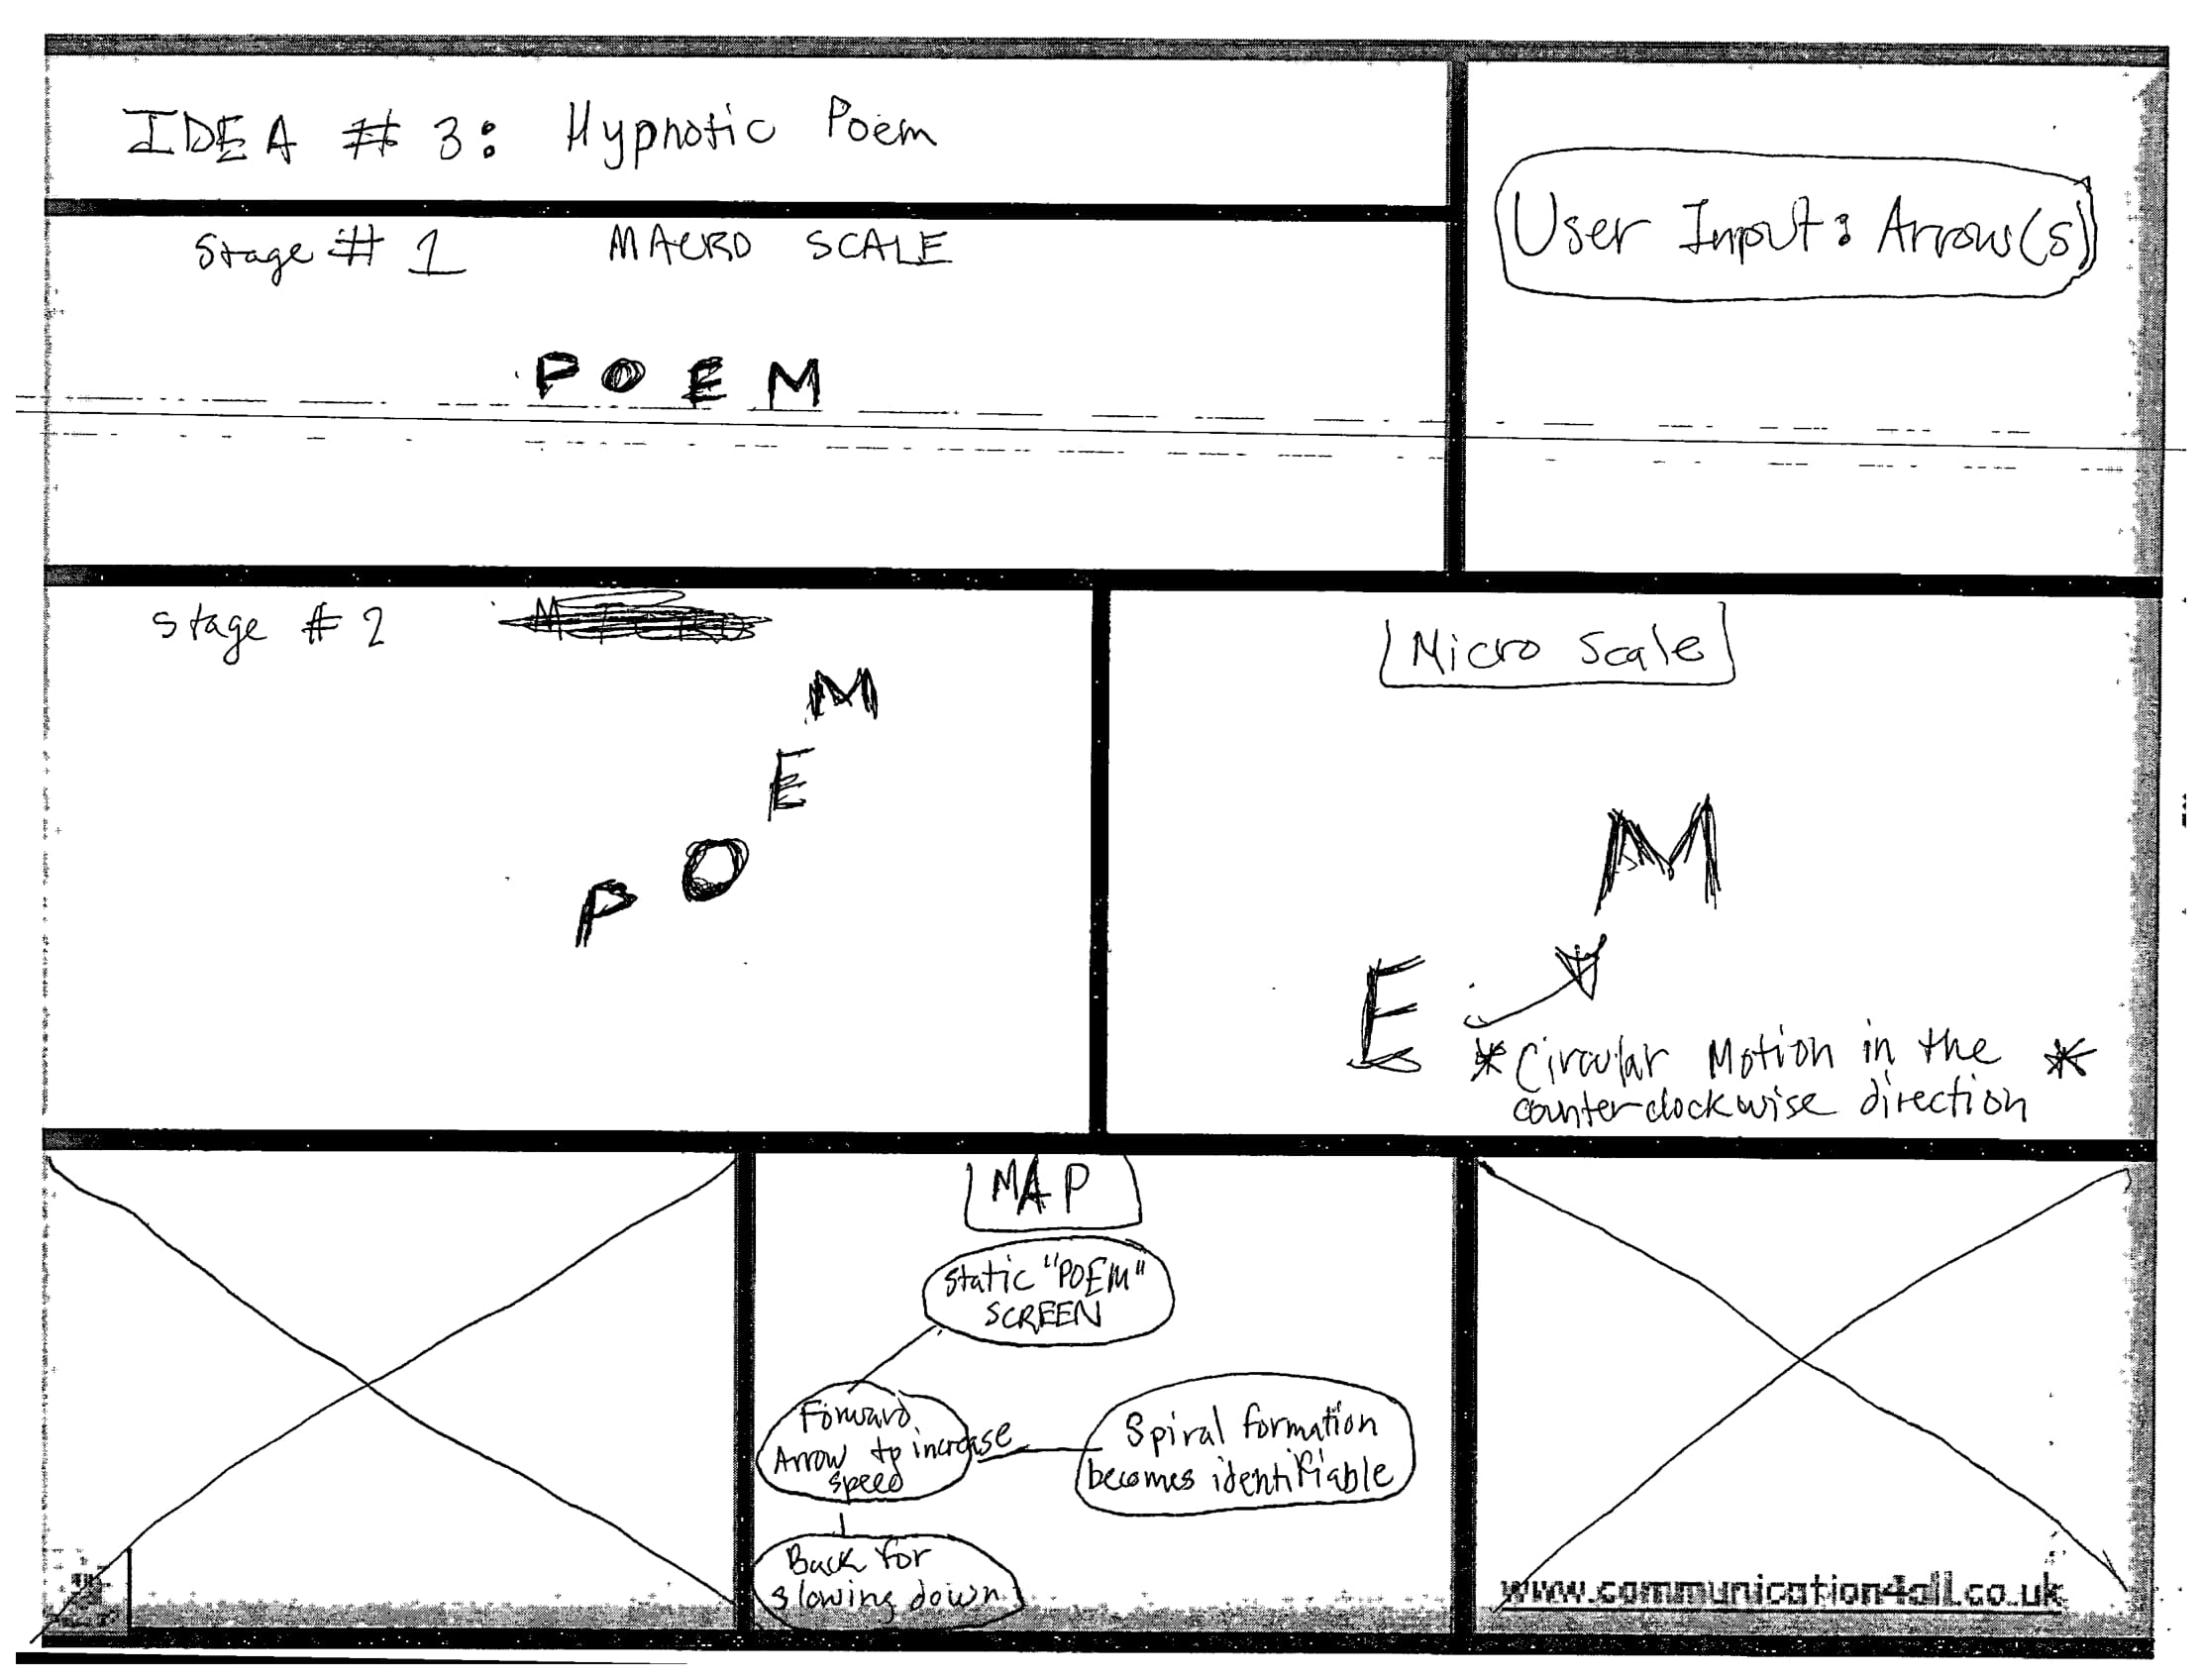 IDEA # 3: Hypnotic Poem
User Input: Arrow(s)
Stage # 1 MACRO SCALE
POEM
Stage # 2
M
E
O
P
Micro Scale
M
E
* Circular Motion in the *
counter-clockwise direction
MAP
Static "POEM"
SCREEN
Forward
Arrow to increase
speed
Spiral formation
becomes identifiable
Back for
slowing down
www.communication4all.co.uk